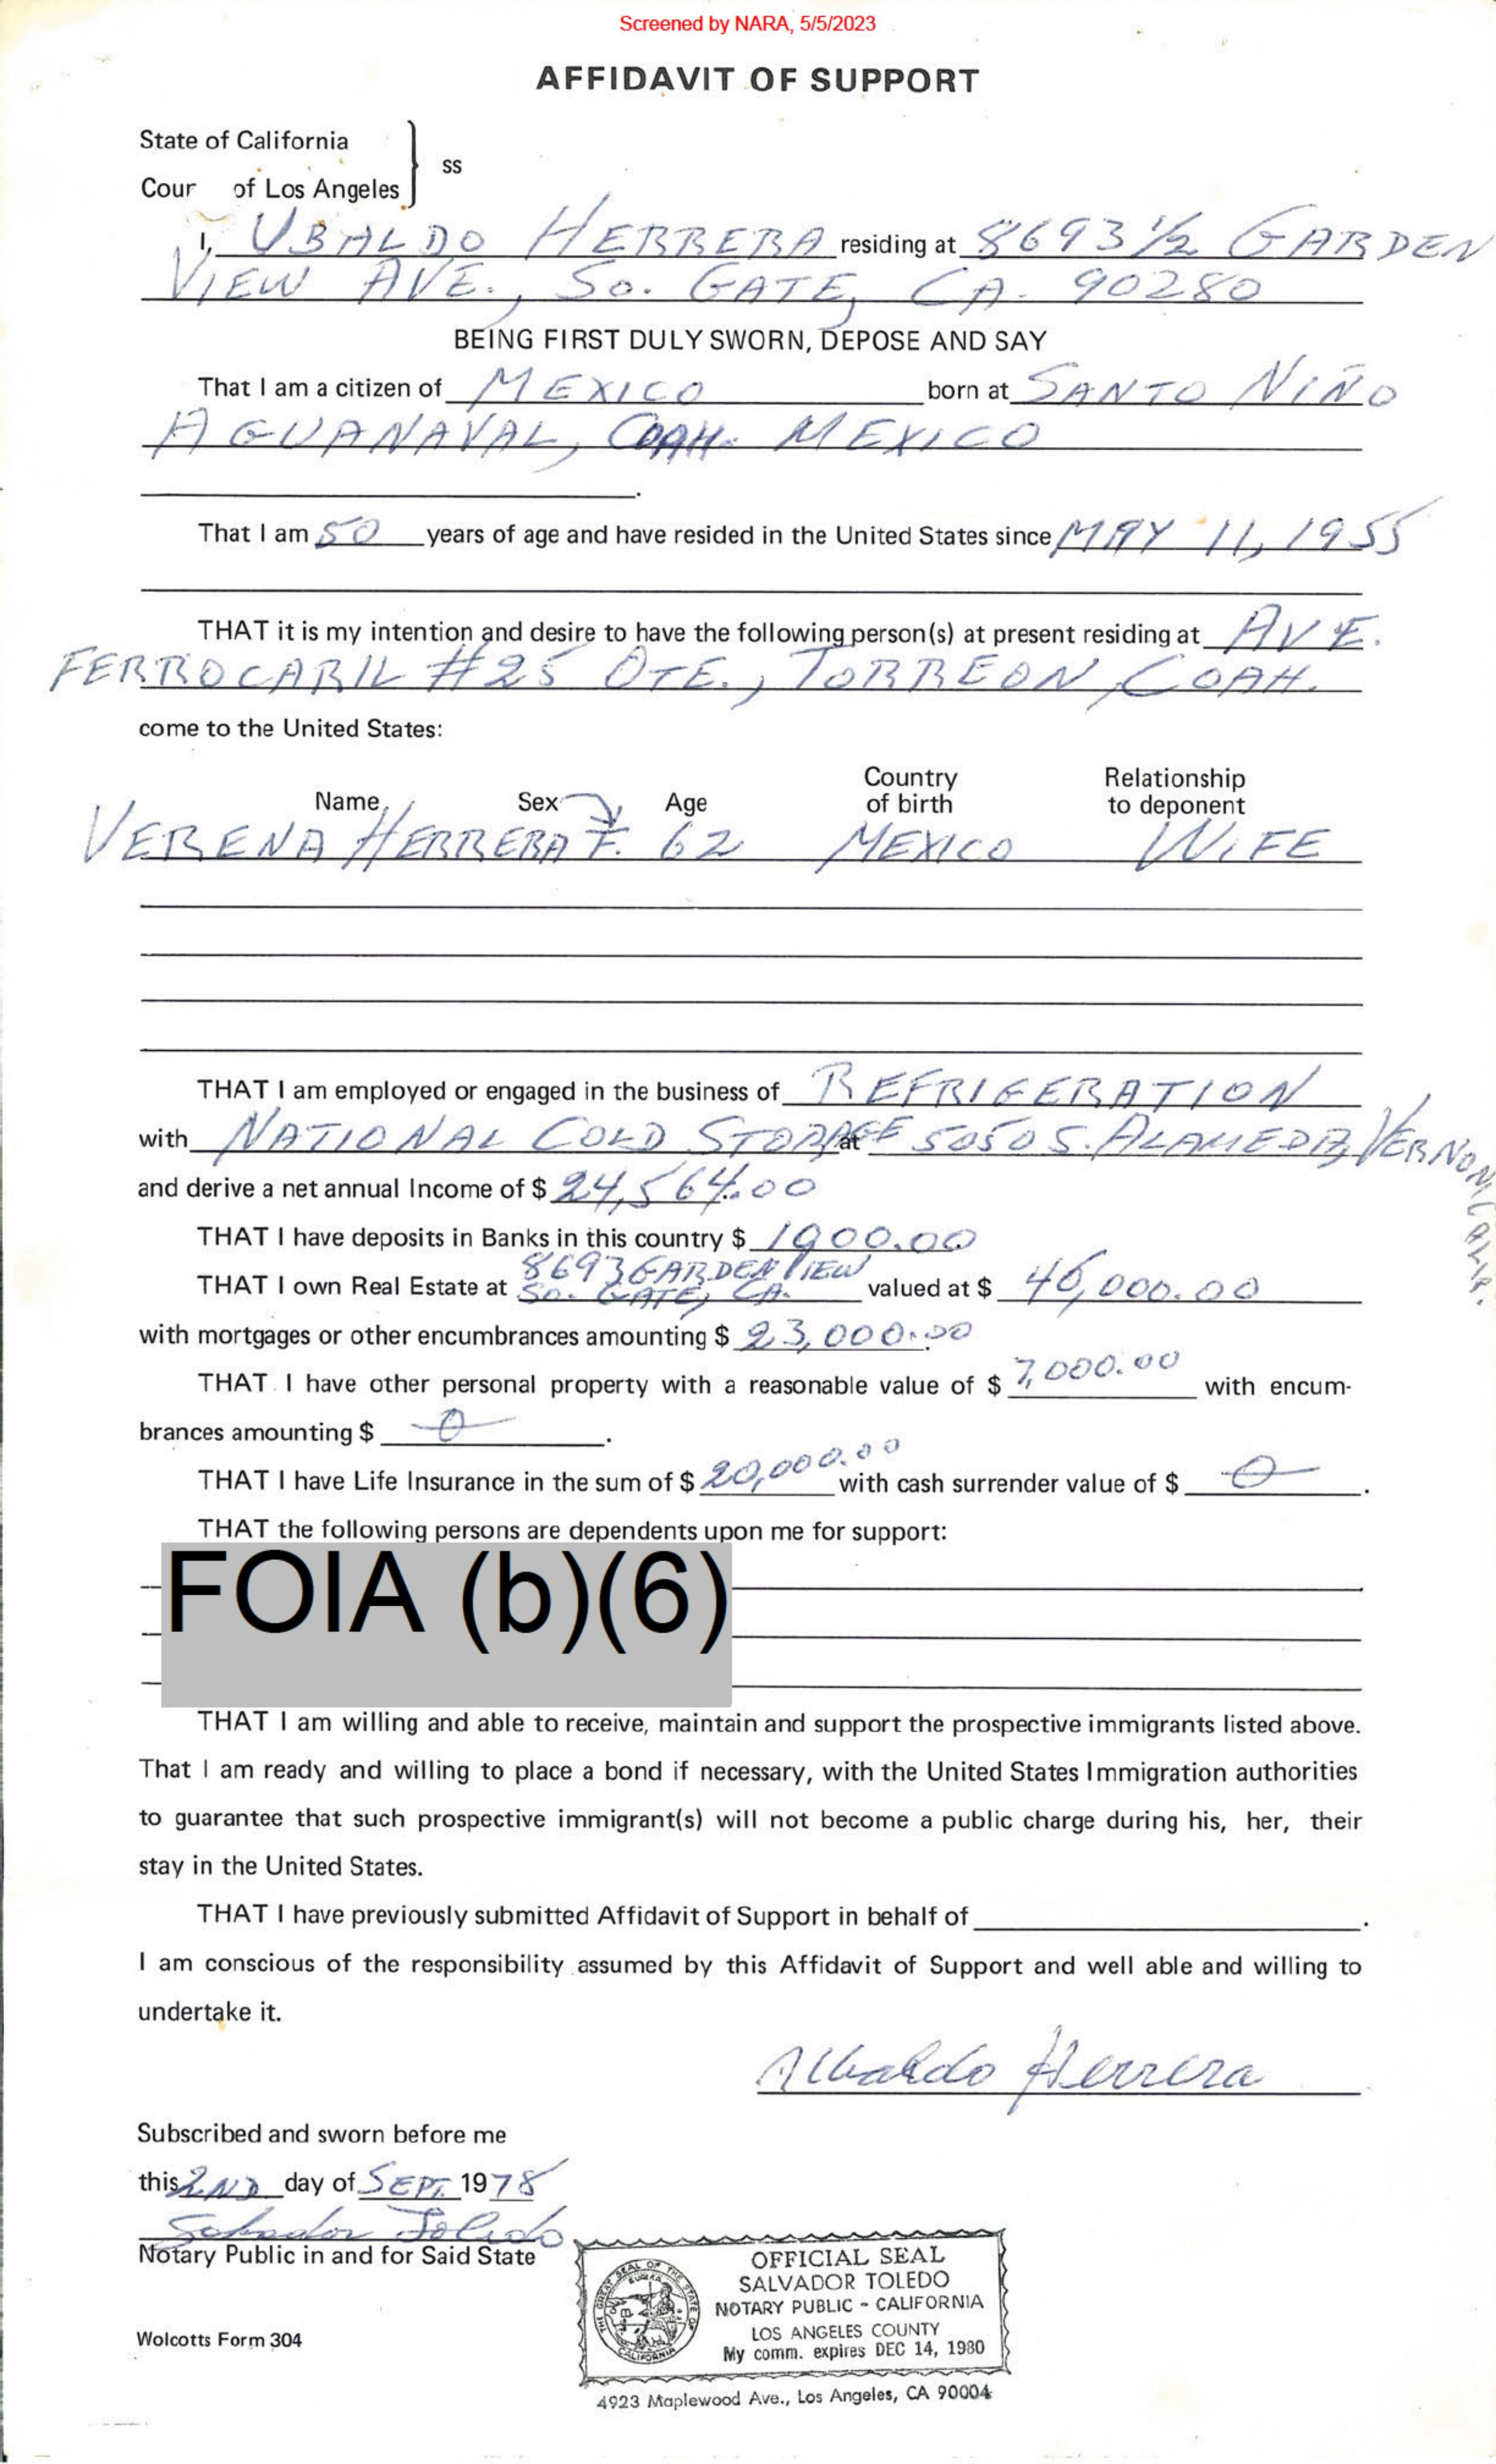 Screened by NARA, 5/5/2023
AFFIDAVIT OF SUPPORT
State of California
Cour of Los Angeles } ss
I, UBALDO HERRERA residing at 8693 1/2 GARDEN
VIEW AVE., So. GATE, CA. 90280
BEING FIRST DULY SWORN, DEPOSE AND SAY
That I am a citizen of MEXICO born at SANTO NIÑO
AGUANAVAL, COAH. MEXICO
That I am 50 years of age and have resided in the United States since MAY 11, 1955
THAT it is my intention and desire to have the following person(s) at present residing at AVE.
FERROCARIL #25 OTE., TORREON, COAH.
come to the United States:
Name Sex Age Country of birth Relationship to deponent
VERENA HERRERA F. 62 MEXICO WIFE
THAT I am employed or engaged in the business of REFRIGERATION
with NATIONAL COLD STORAGE at 5050 S. ALAMEDA, VERNON, CALIF.
and derive a net annual Income of $ 24,564.00
THAT I have deposits in Banks in this country $ 1900.00
THAT I own Real Estate at 8693 GARDEN VIEW So. GATE, CA. valued at $ 46,000.00
with mortgages or other encumbrances amounting $ 23,000.00
THAT I have other personal property with a reasonable value of $ 7,000.00 with encum-
brances amounting $ 0.
THAT I have Life Insurance in the sum of $ 20,000.00 with cash surrender value of $ 0.
THAT the following persons are dependents upon me for support:
FOIA (b)(6)
THAT I am willing and able to receive, maintain and support the prospective immigrants listed above.
That I am ready and willing to place a bond if necessary, with the United States Immigration authorities
to guarantee that such prospective immigrant(s) will not become a public charge during his, her, their
stay in the United States.
THAT I have previously submitted Affidavit of Support in behalf of .
I am conscious of the responsibility assumed by this Affidavit of Support and well able and willing to
undertake it.
Ubaldo Herrera
Subscribed and sworn before me
this 2ND day of SEPT. 1978
Salvador Toledo
Notary Public in and for Said State
OFFICIAL SEAL
SALVADOR TOLEDO
NOTARY PUBLIC - CALIFORNIA
LOS ANGELES COUNTY
My comm. expires DEC 14, 1980
THE GREAT SEAL OF THE STATE OF CALIFORNIA
EUREKA
Wolcotts Form 304
4923 Maplewood Ave., Los Angeles, CA 90004